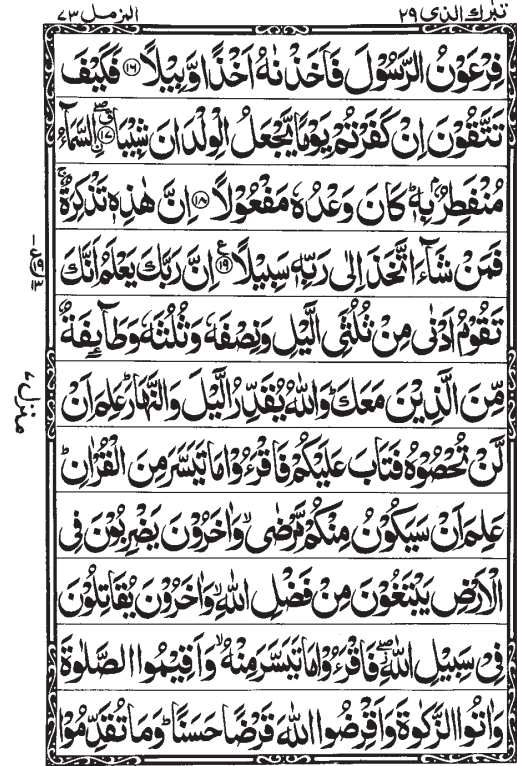 تبرك الذی ۲۹
المزمل ۷۳
فِرْعَوْنُ الرَّسُوْلَ فَاَخَذْنٰهُ اَخْذًا وَّبِيْلًا ﴿۱۶﴾ فَكَيْفَ
تَتَّقُوْنَ اِنْ كَفَرْتُمْ يَوْمًا يَّجْعَلُ الْوِلْدَانَ شِيْبَا ﴿۱۷﴾ ۨالسَّمَآءُ
مُنْفَطِرٌۢ بِهٖ ؕ كَانَ وَعْدُهٗ مَفْعُوْلًا ﴿۱۸﴾ اِنَّ هٰذِهٖ تَذْكِرَةٌ ۚ
فَمَنْ شَآءَ اتَّخَذَ اِلٰى رَبِّهٖ سَبِيْلًا ﴿۱۹﴾ ع اِنَّ رَبَّكَ يَعْلَمُ اَنَّكَ
تَقُوْمُ اَدْنٰى مِنْ ثُلُثَىِ الَّيْلِ وَنِصْفَهٗ وَثُلُثَهٗ وَطَآئِفَةٌ
مِّنَ الَّذِيْنَ مَعَكَ ؕ وَاللّٰهُ يُقَدِّرُ الَّيْلَ وَالنَّهَارَ ؕ عَلِمَ اَنْ
لَّنْ تُحْصُوْهُ فَتَابَ عَلَيْكُمْ فَاقْرَءُوْا مَا تَيَسَّرَ مِنَ الْقُرْاٰنِ ؕ
عَلِمَ اَنْ سَيَكُوْنُ مِنْكُمْ مَّرْضٰى ۙ وَاٰخَرُوْنَ يَضْرِبُوْنَ فِى
الْاَرْضِ يَبْتَغُوْنَ مِنْ فَضْلِ اللّٰهِ ۙ وَاٰخَرُوْنَ يُقَاتِلُوْنَ
فِىْ سَبِيْلِ اللّٰهِ ۖ فَاقْرَءُوْا مَا تَيَسَّرَ مِنْهُ ۙ وَاَقِيْمُوا الصَّلٰوةَ
وَاٰتُوا الزَّكٰوةَ وَاَقْرِضُوا اللّٰهَ قَرْضًا حَسَنًا ؕ وَمَا تُقَدِّمُوْا
منزل ۷